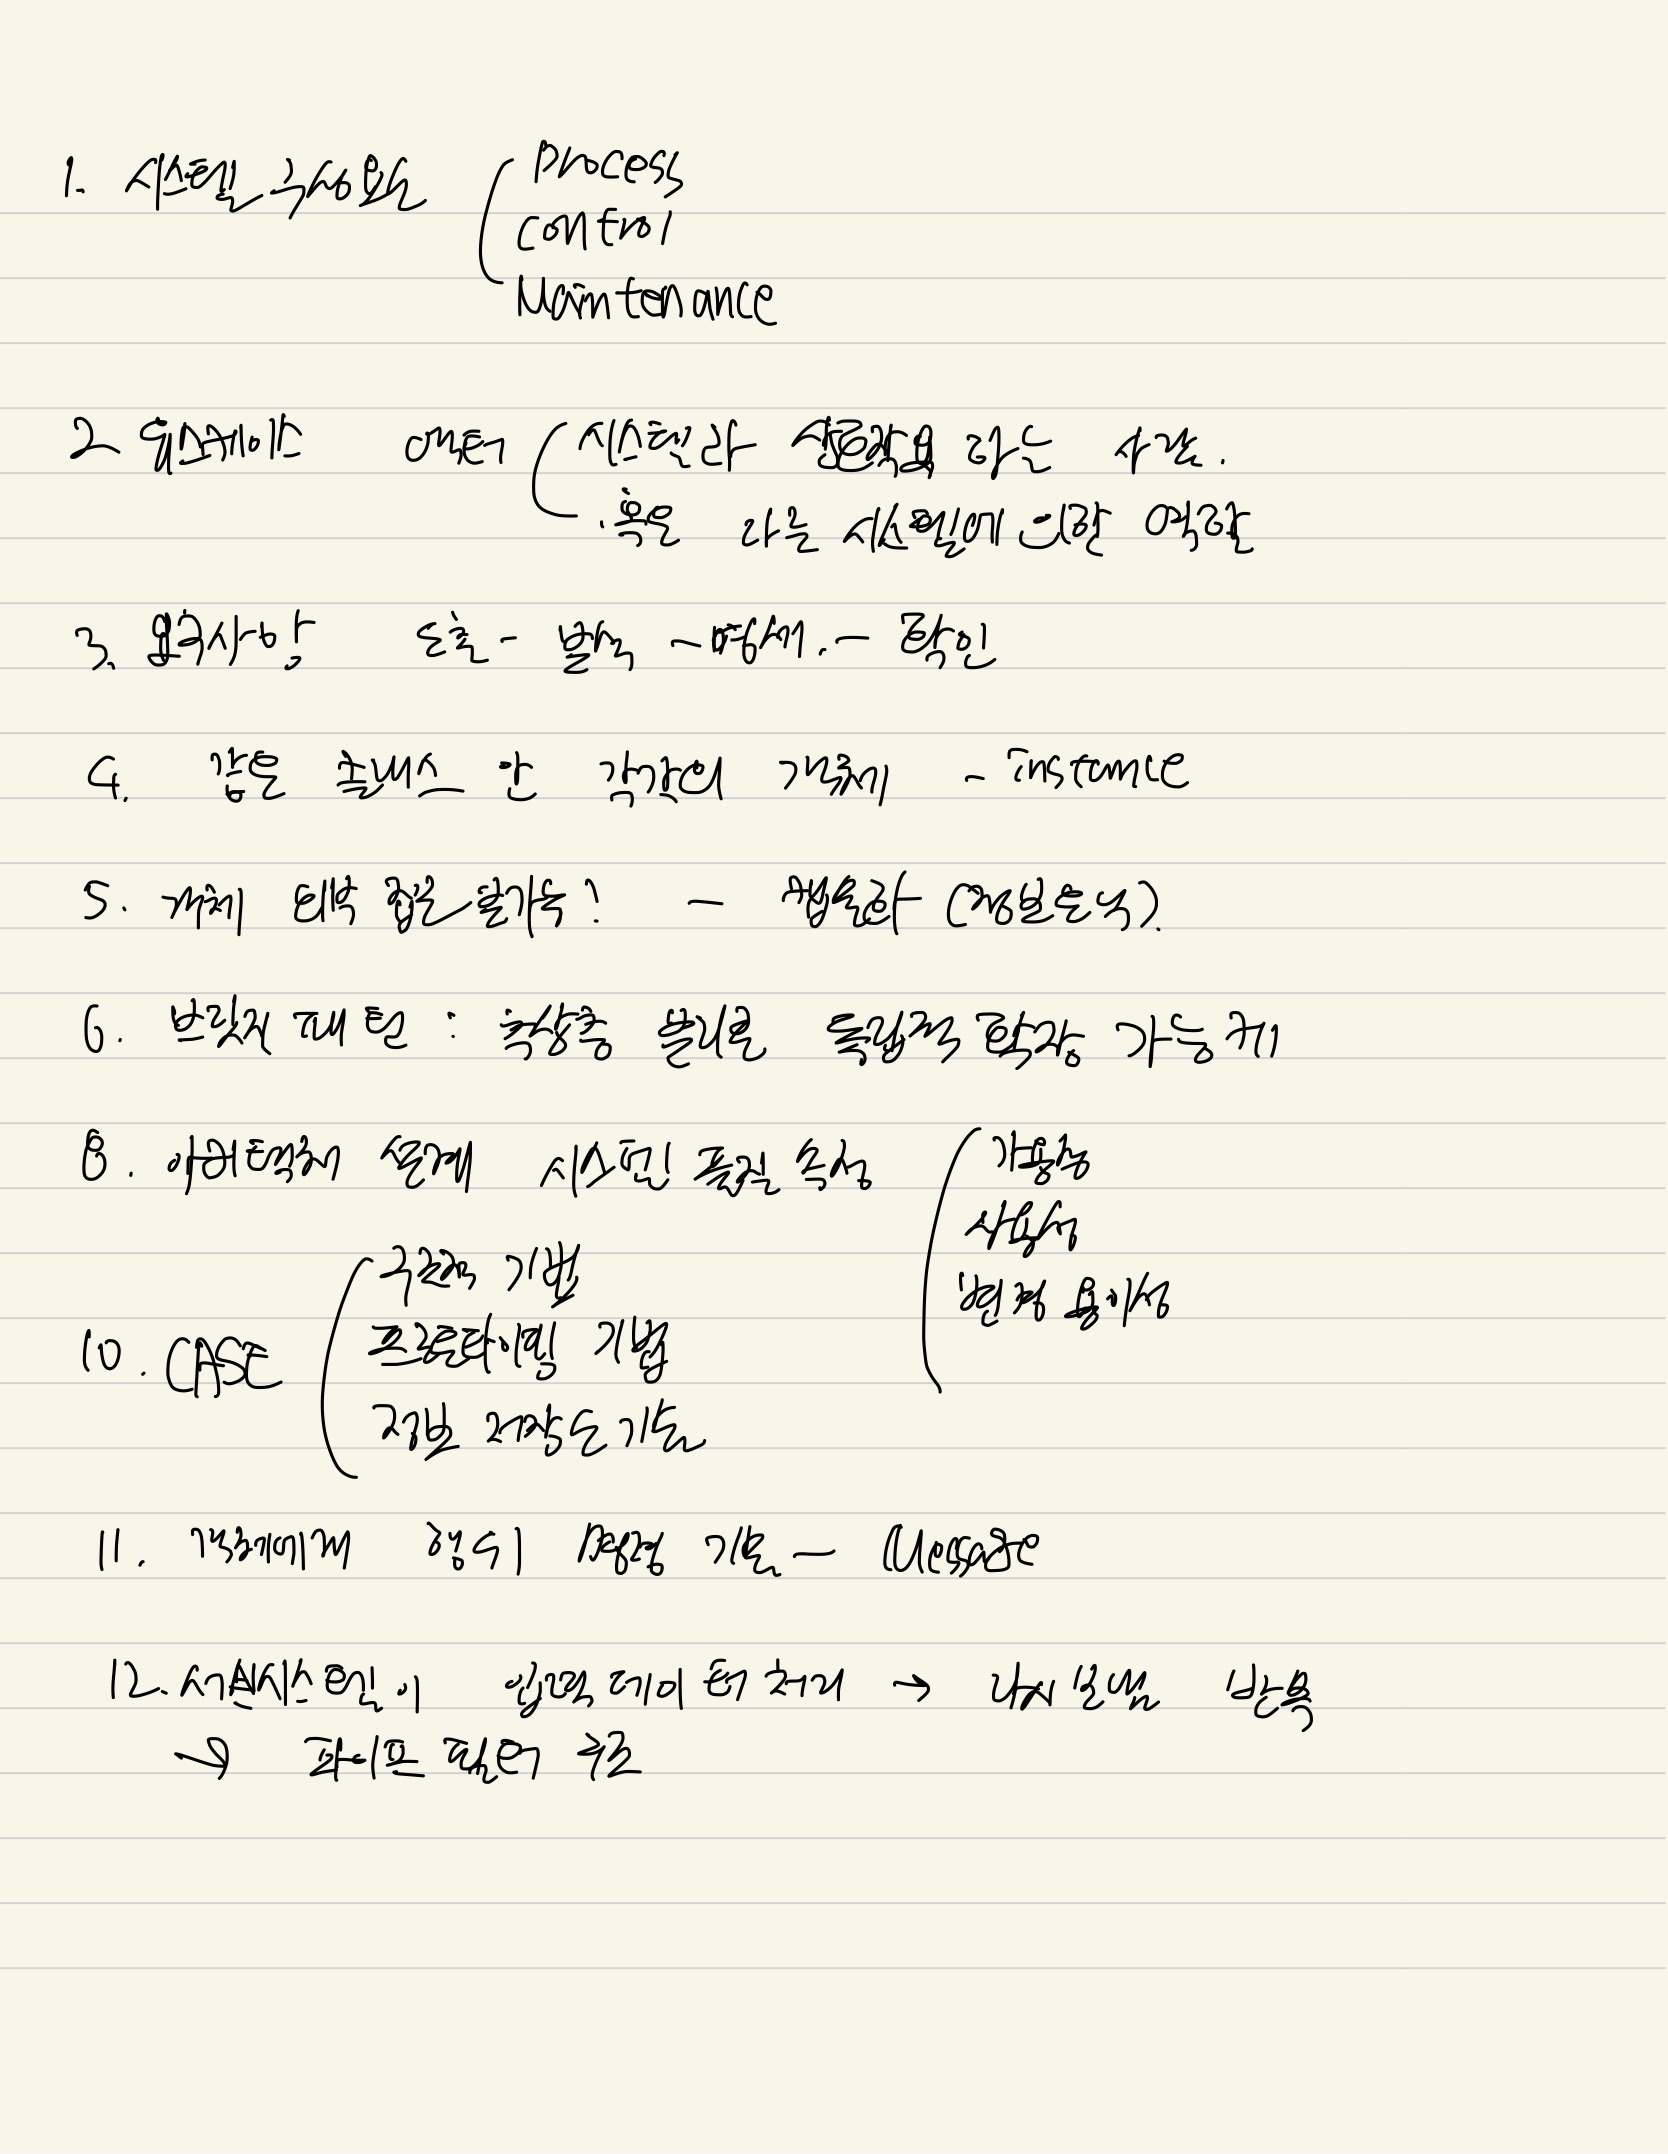 1. 시스템 구성요소 Process
Control
Maintenance
2 유스케이스 액터 시스템과 상호작용 하는 사람.
. 혹은 다른 시스템에 의한 역할
3. 요구사항 도출 - 분석 - 명세. - 확인
4. 같은 클래스 안 각각의 객체 - instance
5. 객체 외부 접근 불가능! - 캡슐화 (정보은닉).
6. 브릿지 패턴 : 추상층 분리로 독립적 확장 가능케
8. 아키텍처 설계 시스템 품질 속성 가용성
사용성
변경 용이성
10. CASE 구조적 기법
프로토타이핑 기법
정보 저장소 기술
11. 객체에게 행위 명령 기능 - Message
12. 서브시스템이 입력 데이터 처리 → 다시 보냄 반복
→ 파이프 필터 구조